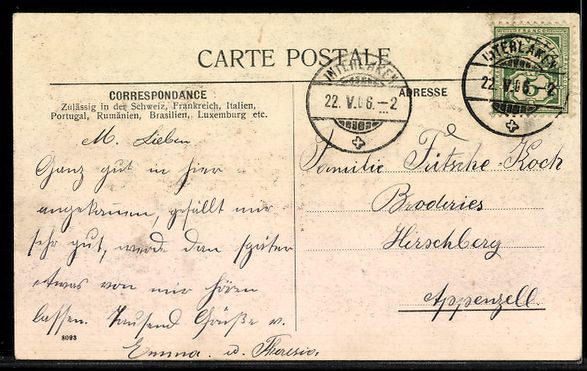 CARTE POSTALE
CORRESPONDANCE
Zulässig in der Schweiz, Frankreich, Italien,
Portugal, Rumänien, Brasilien, Luxemburg etc.
M. Lieben
Ganz gut in hier
angekommen, gefällt mir
sehr gut, werde dan später
etwas von mir hören
lassen. Tausend Grüße v.
Emma u. Theresia.
8093
INTERLAKEN
22.V.06.–2
ADRESSE
INTERLAKEN
22.V.06.–2
FRANCO
5
Familie Fütsche-Koch
Broderies
Hirschberg
Appenzell.